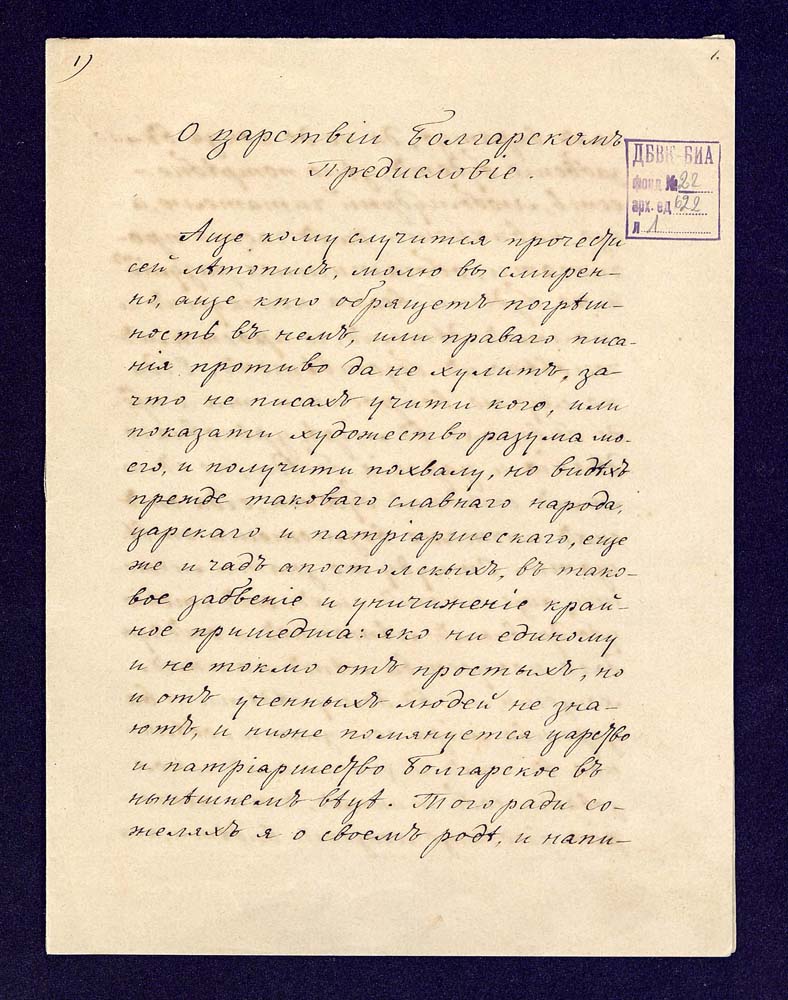 1)
1.
О царствіи Болгарскомъ
Предисловіе.
ДБВК-БИА
фонд № 22
арх. ед 622
л 1
Аще кому случится прочести
сей лѣтописъ, молю вы смирен-
но, аще кто обрящетъ погрѣш-
ность въ немъ, или праваго писа-
нія противо да не хулитъ, за-
что не писахъ учити кого, или
показати художество разума мо-
его, и получити похвалу, но видѣхъ
прежде таковаго славнаго народа,
царскаго и патріаршескаго, еще
же и чадъ апостолскыхъ, въ тако-
вое забвеніе и уничиженіе край-
ное пришедша: яко ни единому
и не токмо отъ простыхъ, но
и отъ ученныхъ людей не зна-
ютъ, и ниже помянуется царство
и патріаршество Болгарское въ
нынѣшнемъ вѣцѣ. Того ради со-
желяхъ я о своемъ родѣ, и напи-